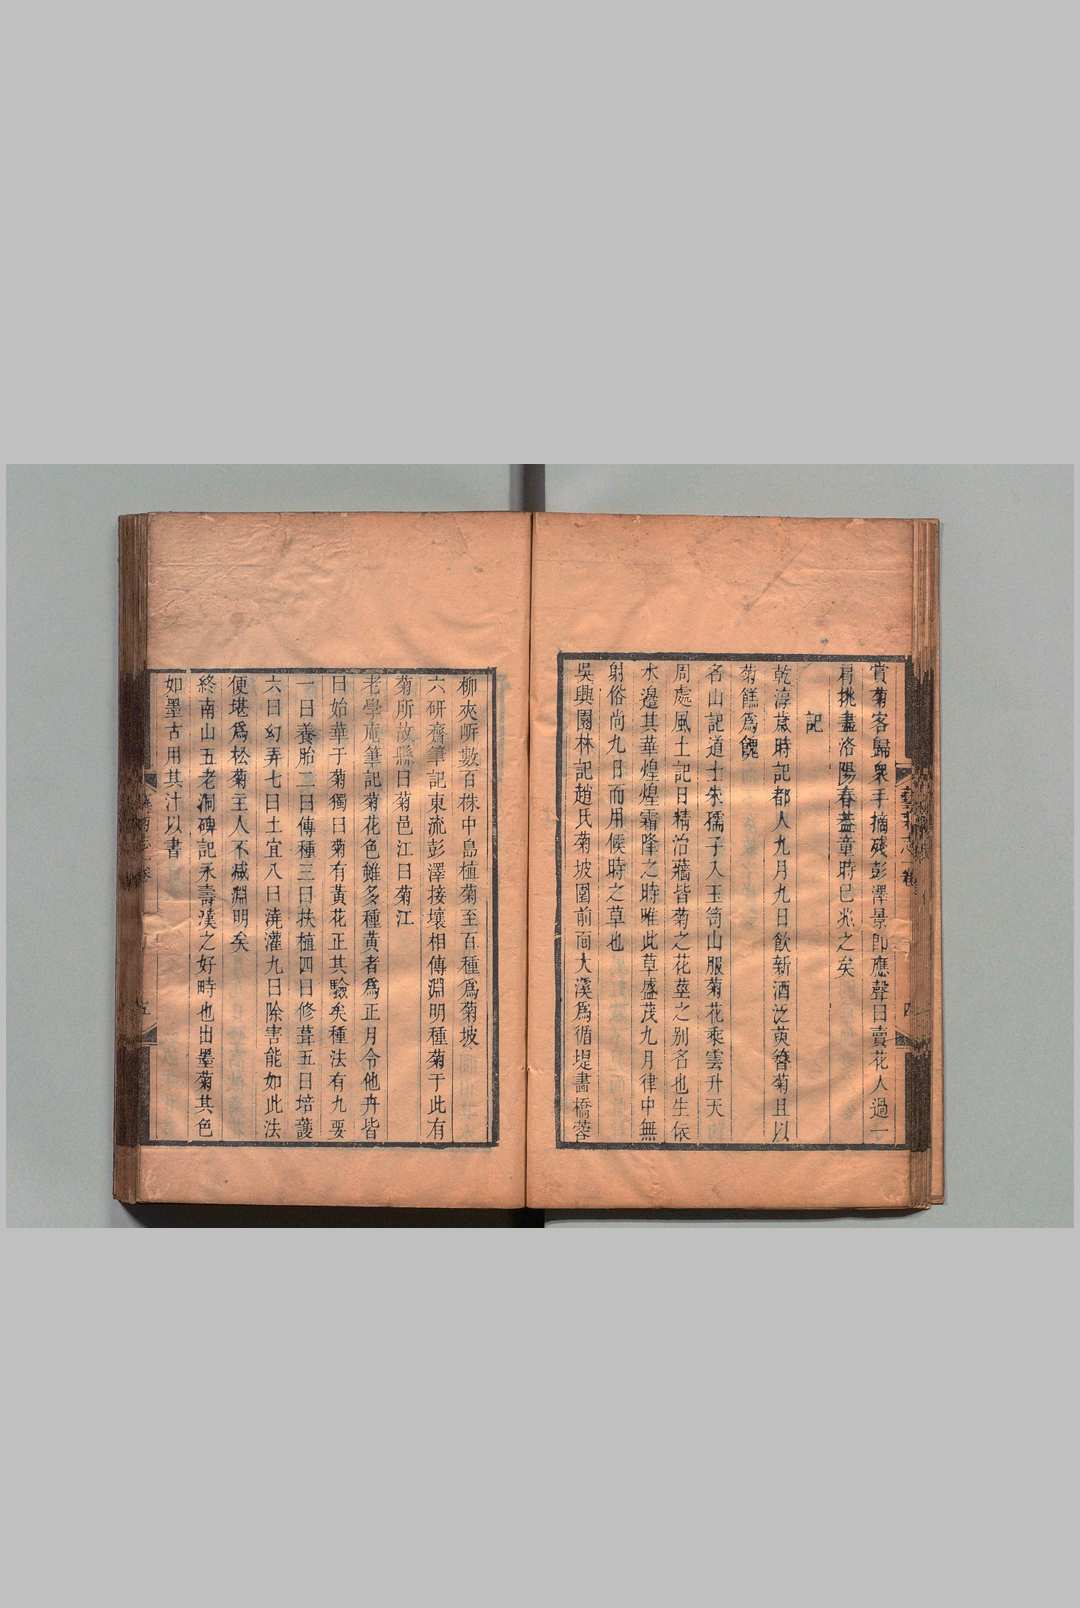 賞菊客歸衆手摘殘彭澤景即應聲曰賣花人過一
肩挑盡洛陽春葢童時已兆之矣
記
乾淳歲時記都人九月九日飲新酒泛萸簪菊且以
菊餻爲餽
名山記道士朱孺子入玉笥山服菊花乘雲升天
周處風土記日精治蘠皆菊之花莖之别名也生依
水邊其華煌煌霜降之時唯此草盛茂九月律中無
射俗尚九日而用候時之草也
吳興園林記趙氏菊坡園前面大溪爲循堤畫橋蓉
柳夾岍數百株中島植菊至百種爲菊坡
六研齋筆記東流彭澤接壤相傳淵明種菊于此有
菊所故縣曰菊邑江曰菊江
老學庵筆記菊花色雖多種黃者爲正月令他卉皆
曰始華于菊獨曰菊有黃花正其驗矣種法有九要
一曰養胎二曰傳種三曰扶植四曰修葺五曰培護
六曰幻弄七曰土宜八曰澆灌九曰除害能如此法
便堪爲松菊主人不减淵明矣
終南山五老洞碑記永壽漢之好時也出墨菊其色
如墨古用其汁以書